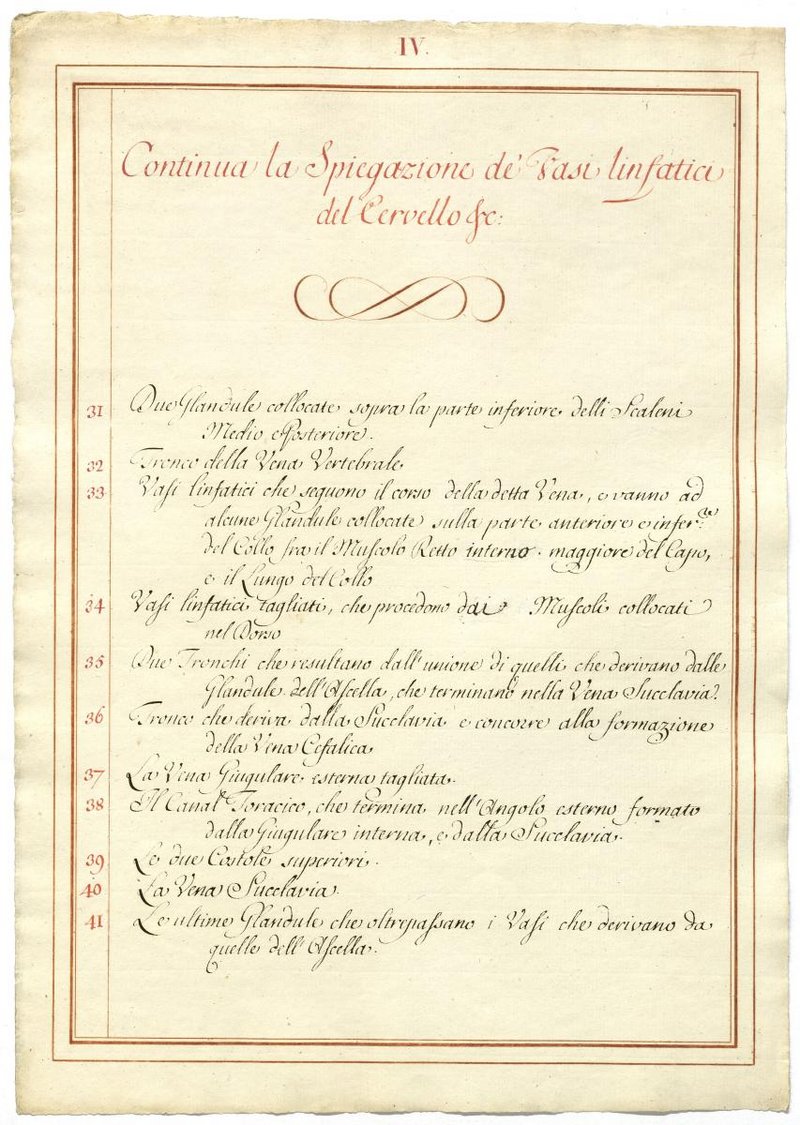 IV.
Continua la Spiegazione de' Vasi linfatici
del Cervello &c:
31 Due Glandule collocate sopra la parte inferiore delli Scaleni
Medio, e Posteriore.
32 Tronco della Vena Vertebrale
33 Vasi linfatici che seguono il corso della detta Vena, e vanno ad
alcune Glandule collocate sulla parte anteriore e infer.re
del Collo fra il Muscolo Retto interno maggiore del Capo,
e il Lungo del Collo
34 Vasi linfatici tagliati, che procedono dai Muscoli collocati
nel Dorso
35 Due Tronchi che resultano dall'unione di quelli che derivano dalle
Glandule dell'Ascella, che terminano nella Vena Succlavia.
36 Tronco che deriva dalla Succlavia e concorre alla formazione
della Vena Cefalica
37 La Vena Giugulare esterna tagliata.
38 Il Canal Toracico, che termina nell'Angolo esterno formato
dalla Giugulare interna, e dalla Succlavia.
39 Le due Costole superiori.
40 La Vena Succlavia.
41 Le ultime Glandule che oltrepassano i Vasi che derivano da
quelle dell'Ascella.